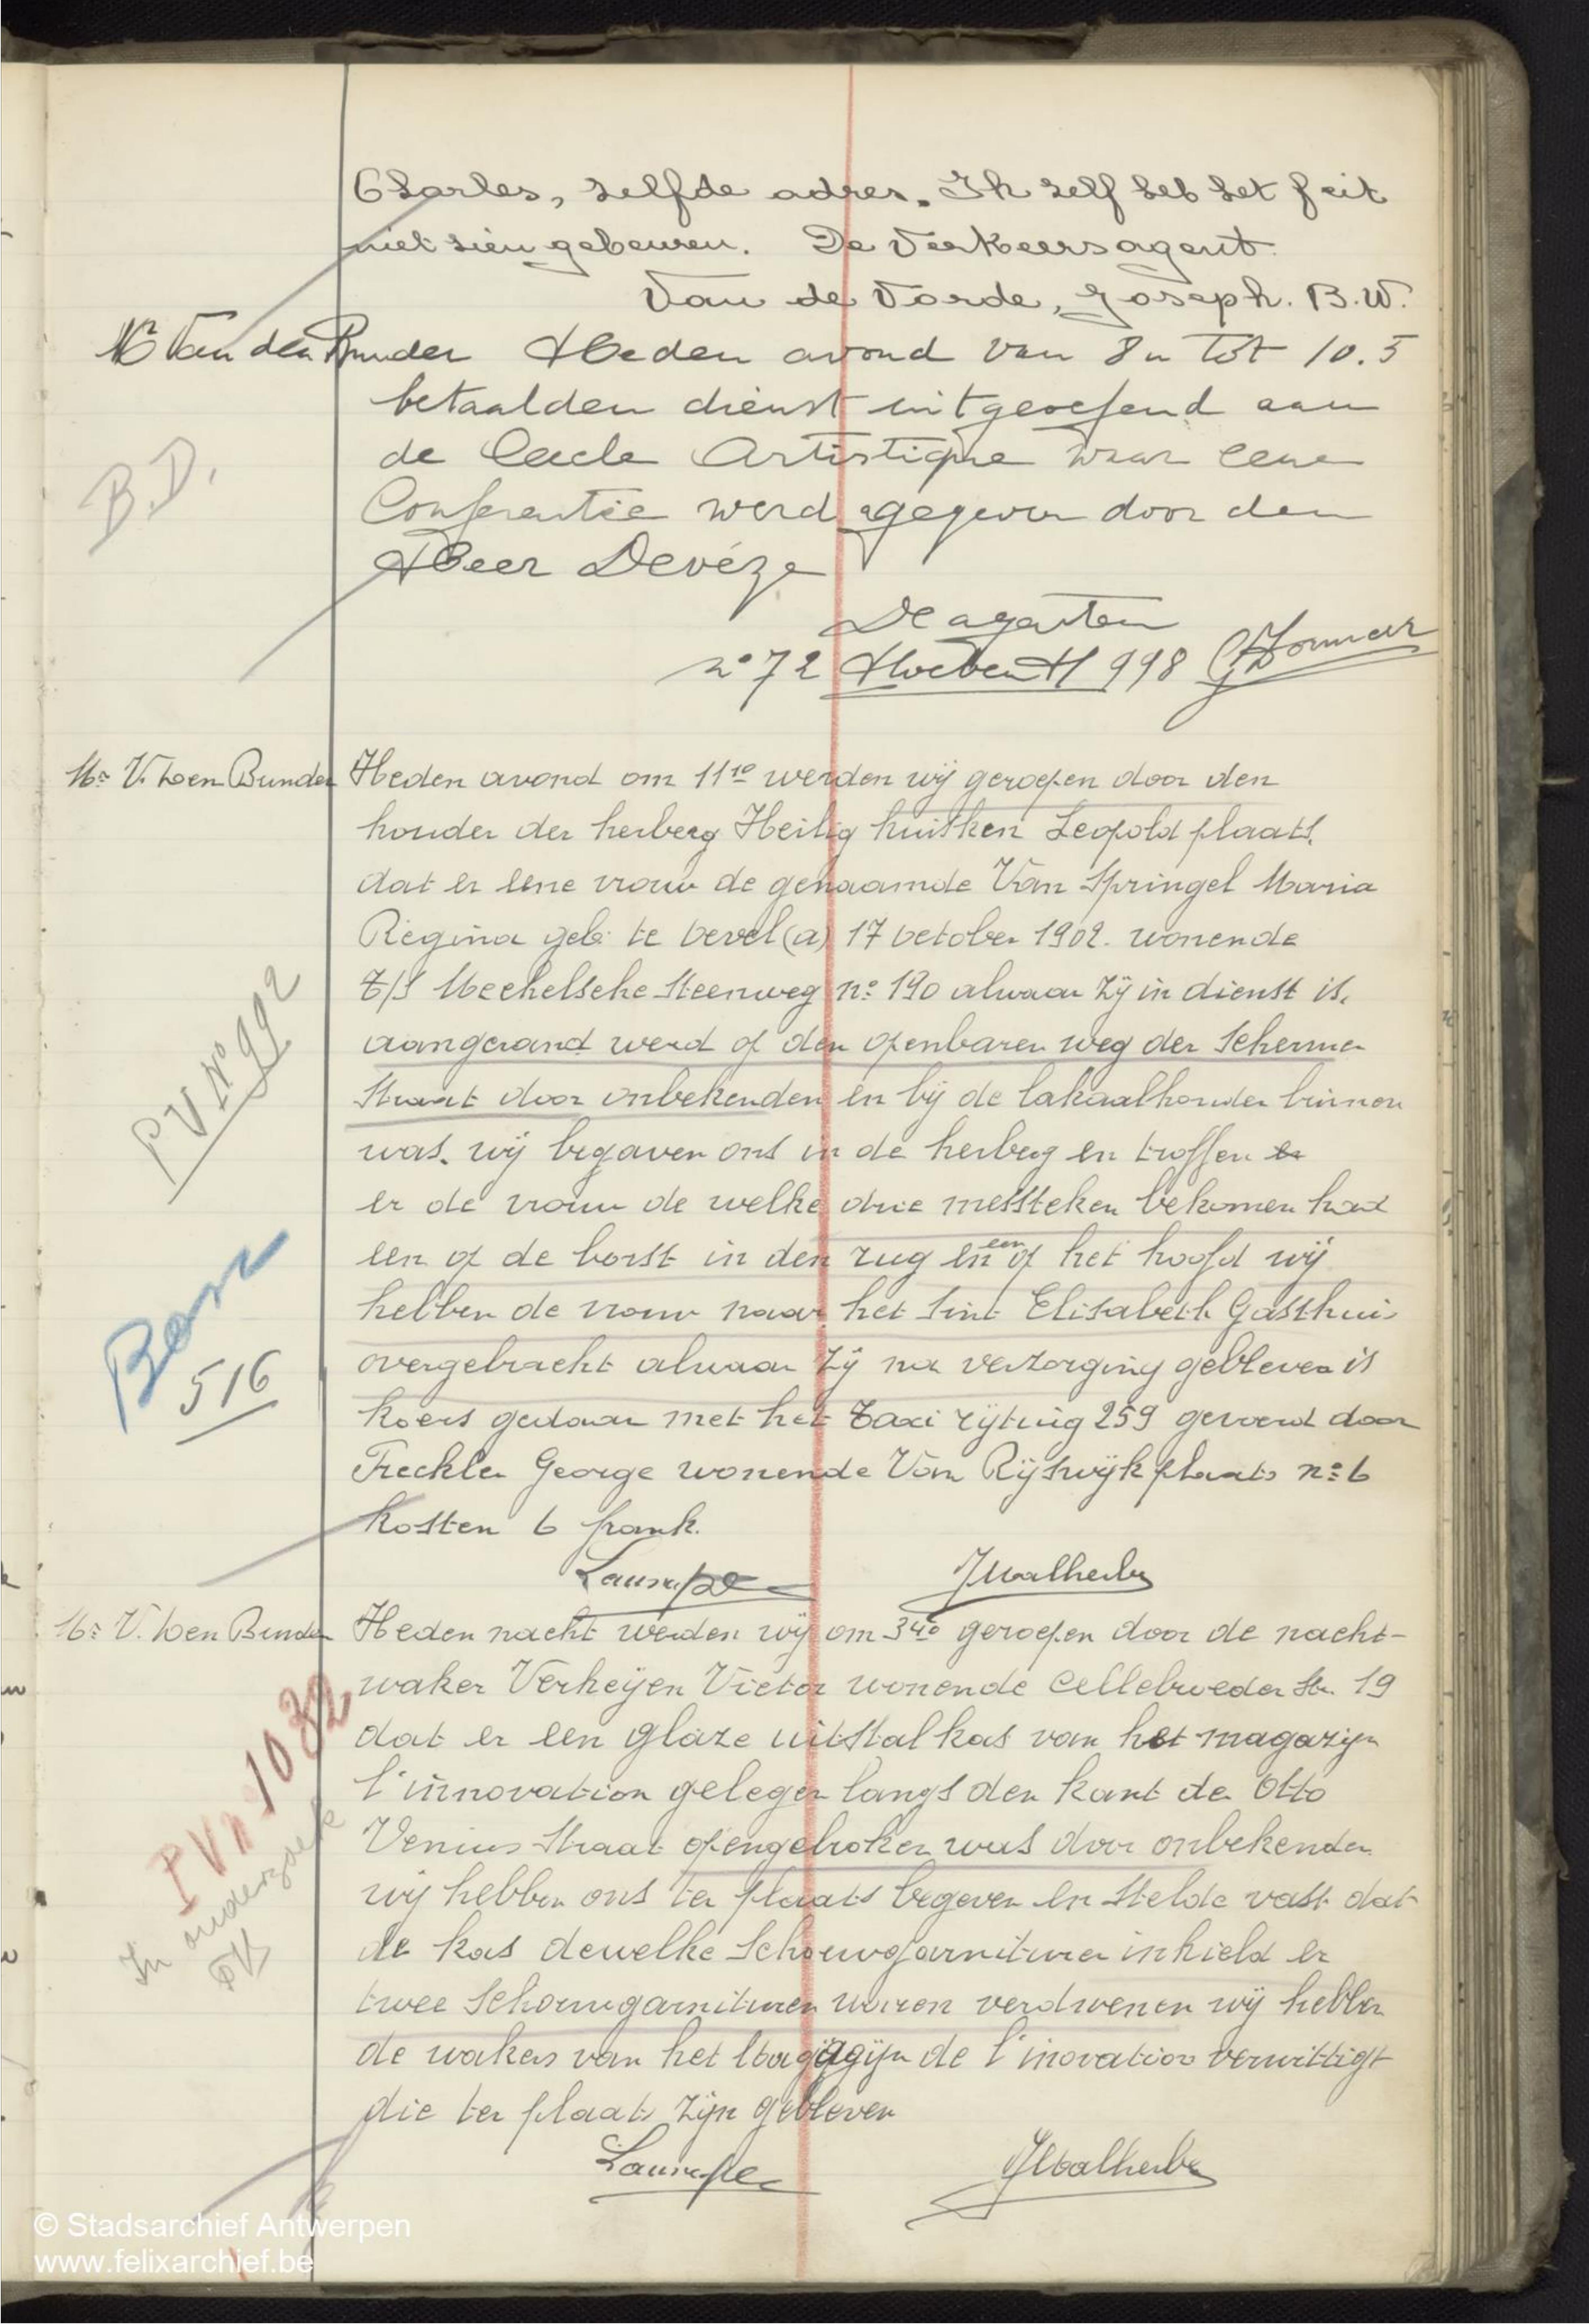 Charles, zelfde adres. Ik zelf heb het feit
niet zien gebeuren. De Verkeersagent.
Van de Vorde, Joseph. B.W.
Mr Van den Bunder Heden avond van 8 u tot 10.5
betaalden dienst uitgeoefend aan
B.D.
de Cercle Artistique waar eene
Conferentie werd gegeven door den
Heer Devéze
De agenten
n° 72 Hoeben H 998
Mr V. den Bunder Heden avond om 11 10 werden wij geroepen door den
houder der herberg Heilig huisken Leopold plaats.
dat er eene vrouw de genaamde Van Springel Maria
Regina geb. te bevel (a) 17 October 1902. wonende
t/s Mechelsche Steenweg n° 190 alwaar zij in dienst is.
PV N° 992
aangerand werd op den openbaren weg der Schermer
Straat door onbekenden en bij de lokaalhouder binnen
was. wij begaven ons in de herberg en troffen er
er de vrouw de welke drie messteken bekomen had
een op de borst in den rug en een op het hoofd wij
hebben de vrouw naar het Sint Elisabeth Gasthuis
516
overgebracht alwaar zij na verzorging gebleven is
koers gedaan met het Taxi rijtuig 259 gevoerd door
Freckler George wonende Van Rijswijk plaats n° 6
kosten 6 frank.
JMalherbe
Mr V. den Bunder Heden nacht werden wij om 3 40 geroepen door de nacht-
waker Verheijen Victor wonende Cellebroeder Str. 19
dat er een glaze uitstalkas van het magazijn
PV n° 1032
l'innovation gelegen langs den kant de Otto
Venius Straat opengebroken was door onbekenden
wij hebben ons ter plaats begeven en stelde vast dat
In onderzoek
de kas dewelke Schouwgarnituren inhield er
twee Schouwgarnituren waren verdwenen wij hebben
de wakers van het Magazijn de l'inovation verwittigt
die ter plaats zijn gebleven
JMalherbe
© Stadsarchief Antwerpen
www.felixarchief.be